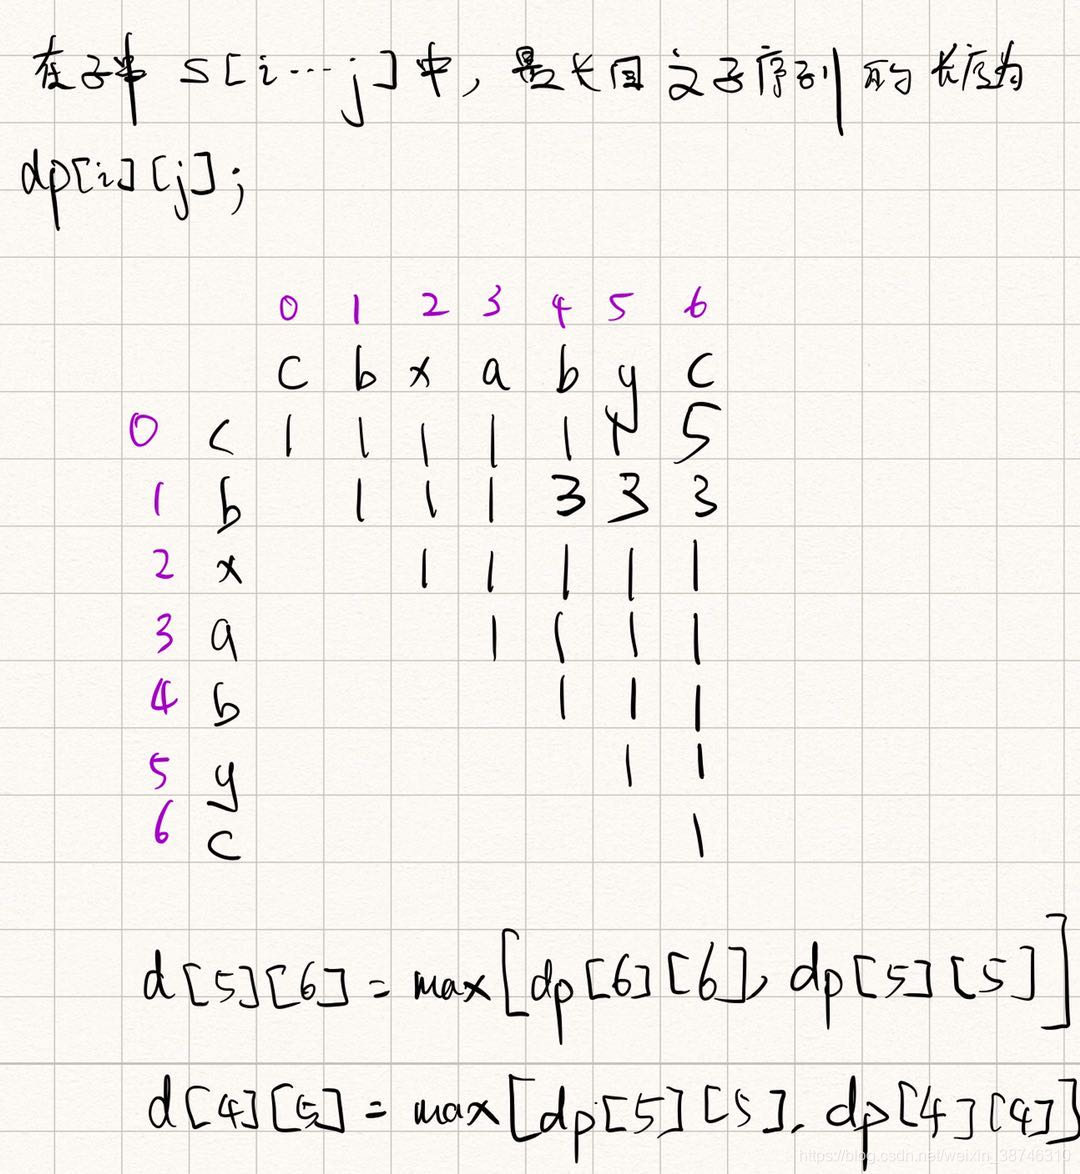 在子串 S[i…j]中,最长回文子序列的长度为
dp[i][j];
0 1 2 3 4 5 6
c b x a b y c
0 c 1 1 1 1 1 1 5
1 b 1 1 1 3 3 3
2 x 1 1 1 1 1
3 a 1 1 1 1
4 b 1 1 1
5 y 1 1
6 c 1
d[5][6] = max[dp[6][6], dp[5][5]]
d[4][5] = max[dp[5][5], dp[4][4]]
https://blog.csdn.net/weixin_38746310